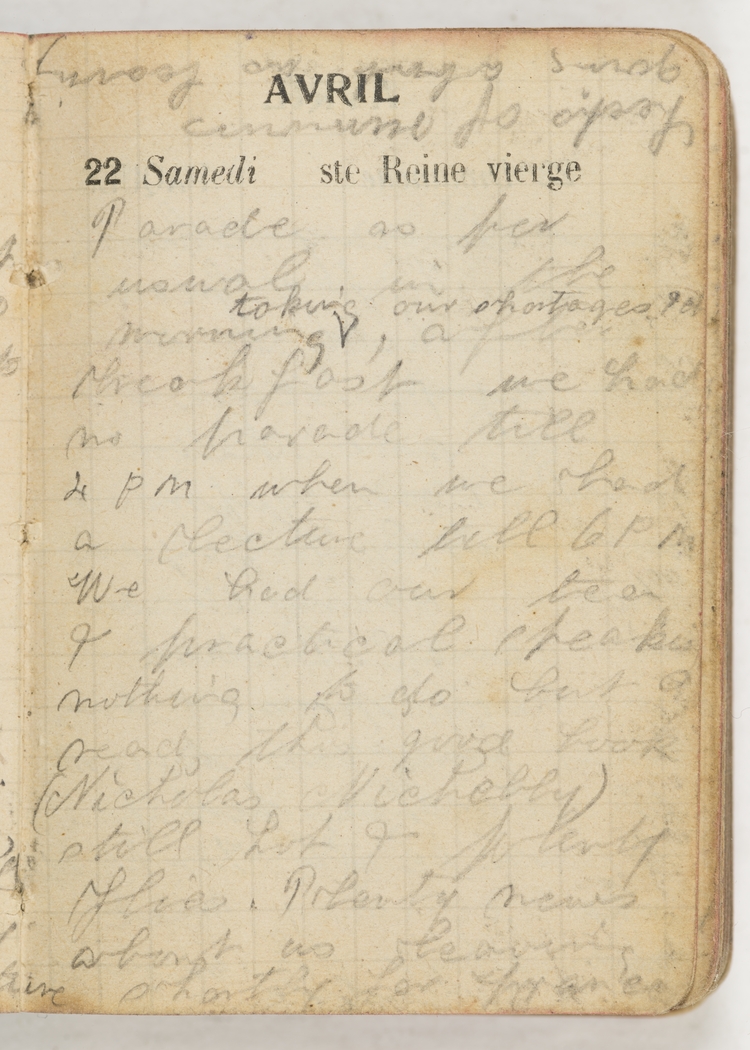 AVRIL
22 Samedi ste Reine vierge
Parade as per
usual in the
taking our shortages
morning, after
breakfast we had
no parade till
4 PM when we had
a lecture till 6 PM
We had our tea
& practical speakin
nothing to do but
read, this good book
(Nicholas Nichelby)
still hot & plenty
flies. Plenty news
about us leaving
shortly for France